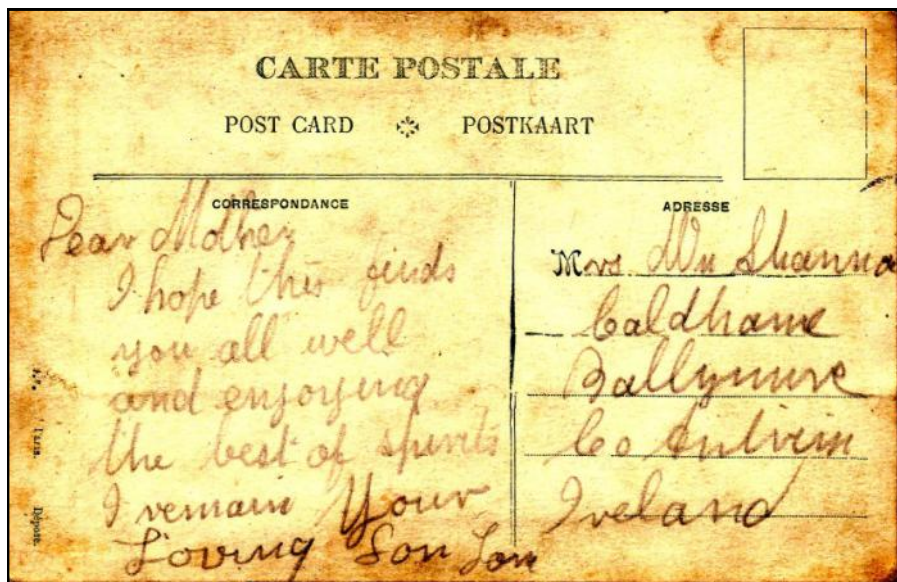 CARTE POSTALE
POST CARD POSTKAART
CORRESPONDANCE
Dear Mother
I hope this finds
you all well
and enjoying
the best of spirits
I remain Your
Loving Son
ADRESSE
Mrs Wm Shanno
Caldhame
Ballymure
Co Antrim
Ireland
Paris. Déposé.